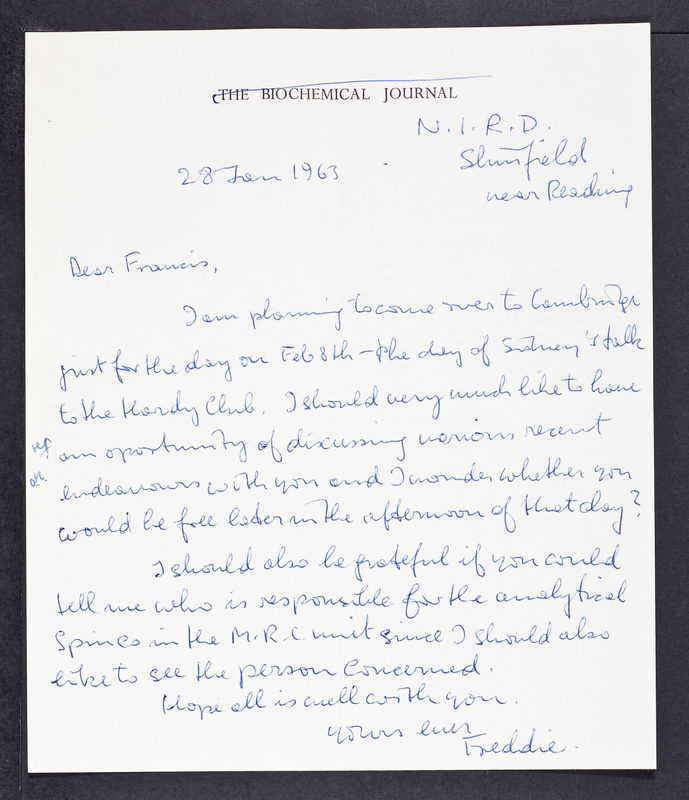 THE BIOCHEMICAL JOURNAL
N.I.R.D.
Shinfield
near Reading
28 Jan 1963
Dear Francis,
I am planning to come over to Cambridge
just for the day on Feb 8th – the day of Sidney's talk
to the Hardy Club. I should very much like to have
an oportunity of discussing various recent
endeavours with you and I wonder whether you
would be free later in the afternoon of that day?
I should also be grateful if you could
tell me who is responsible for the analytical
Spinco in the M.R.C. unit since I should also
like to see the person concerned.
Hope all is well with you.
yours ever
Freddie.